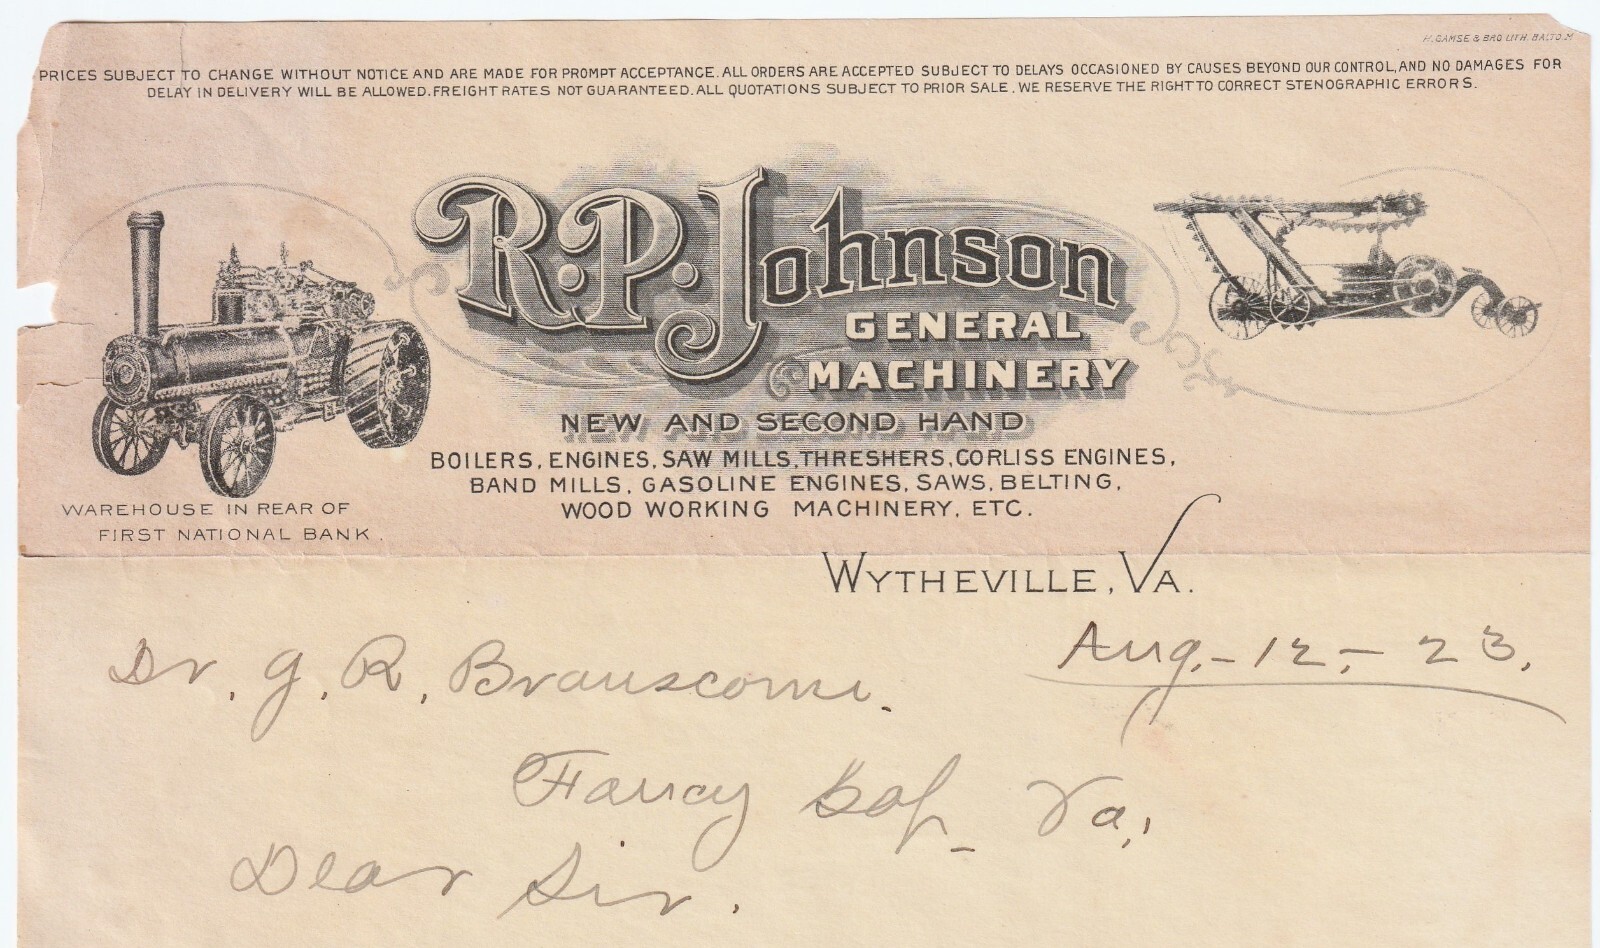 H. GAMSE & BRO LITH, BALTO. M
PRICES SUBJECT TO CHANGE WITHOUT NOTICE AND ARE MADE FOR PROMPT ACCEPTANCE. ALL ORDERS ARE ACCEPTED SUBJECT TO DELAYS OCCASIONED BY CAUSES BEYOND OUR CONTROL, AND NO DAMAGES FOR
DELAY IN DELIVERY WILL BE ALLOWED. FREIGHT RATES NOT GUARANTEED. ALL QUOTATIONS SUBJECT TO PRIOR SALE. WE RESERVE THE RIGHT TO CORRECT STENOGRAPHIC ERRORS.
R.P. Johnson
GENERAL
MACHINERY
NEW AND SECOND HAND
BOILERS, ENGINES, SAW MILLS, THRESHERS, CORLISS ENGINES,
BAND MILLS, GASOLINE ENGINES, SAWS, BELTING,
WOOD WORKING MACHINERY, ETC.
WAREHOUSE IN REAR OF
FIRST NATIONAL BANK.
WYTHEVILLE, VA.
Aug.-12,-23.
Dr. G. R. Branscome.
Fancy Gap Va.,
Dear Sir.